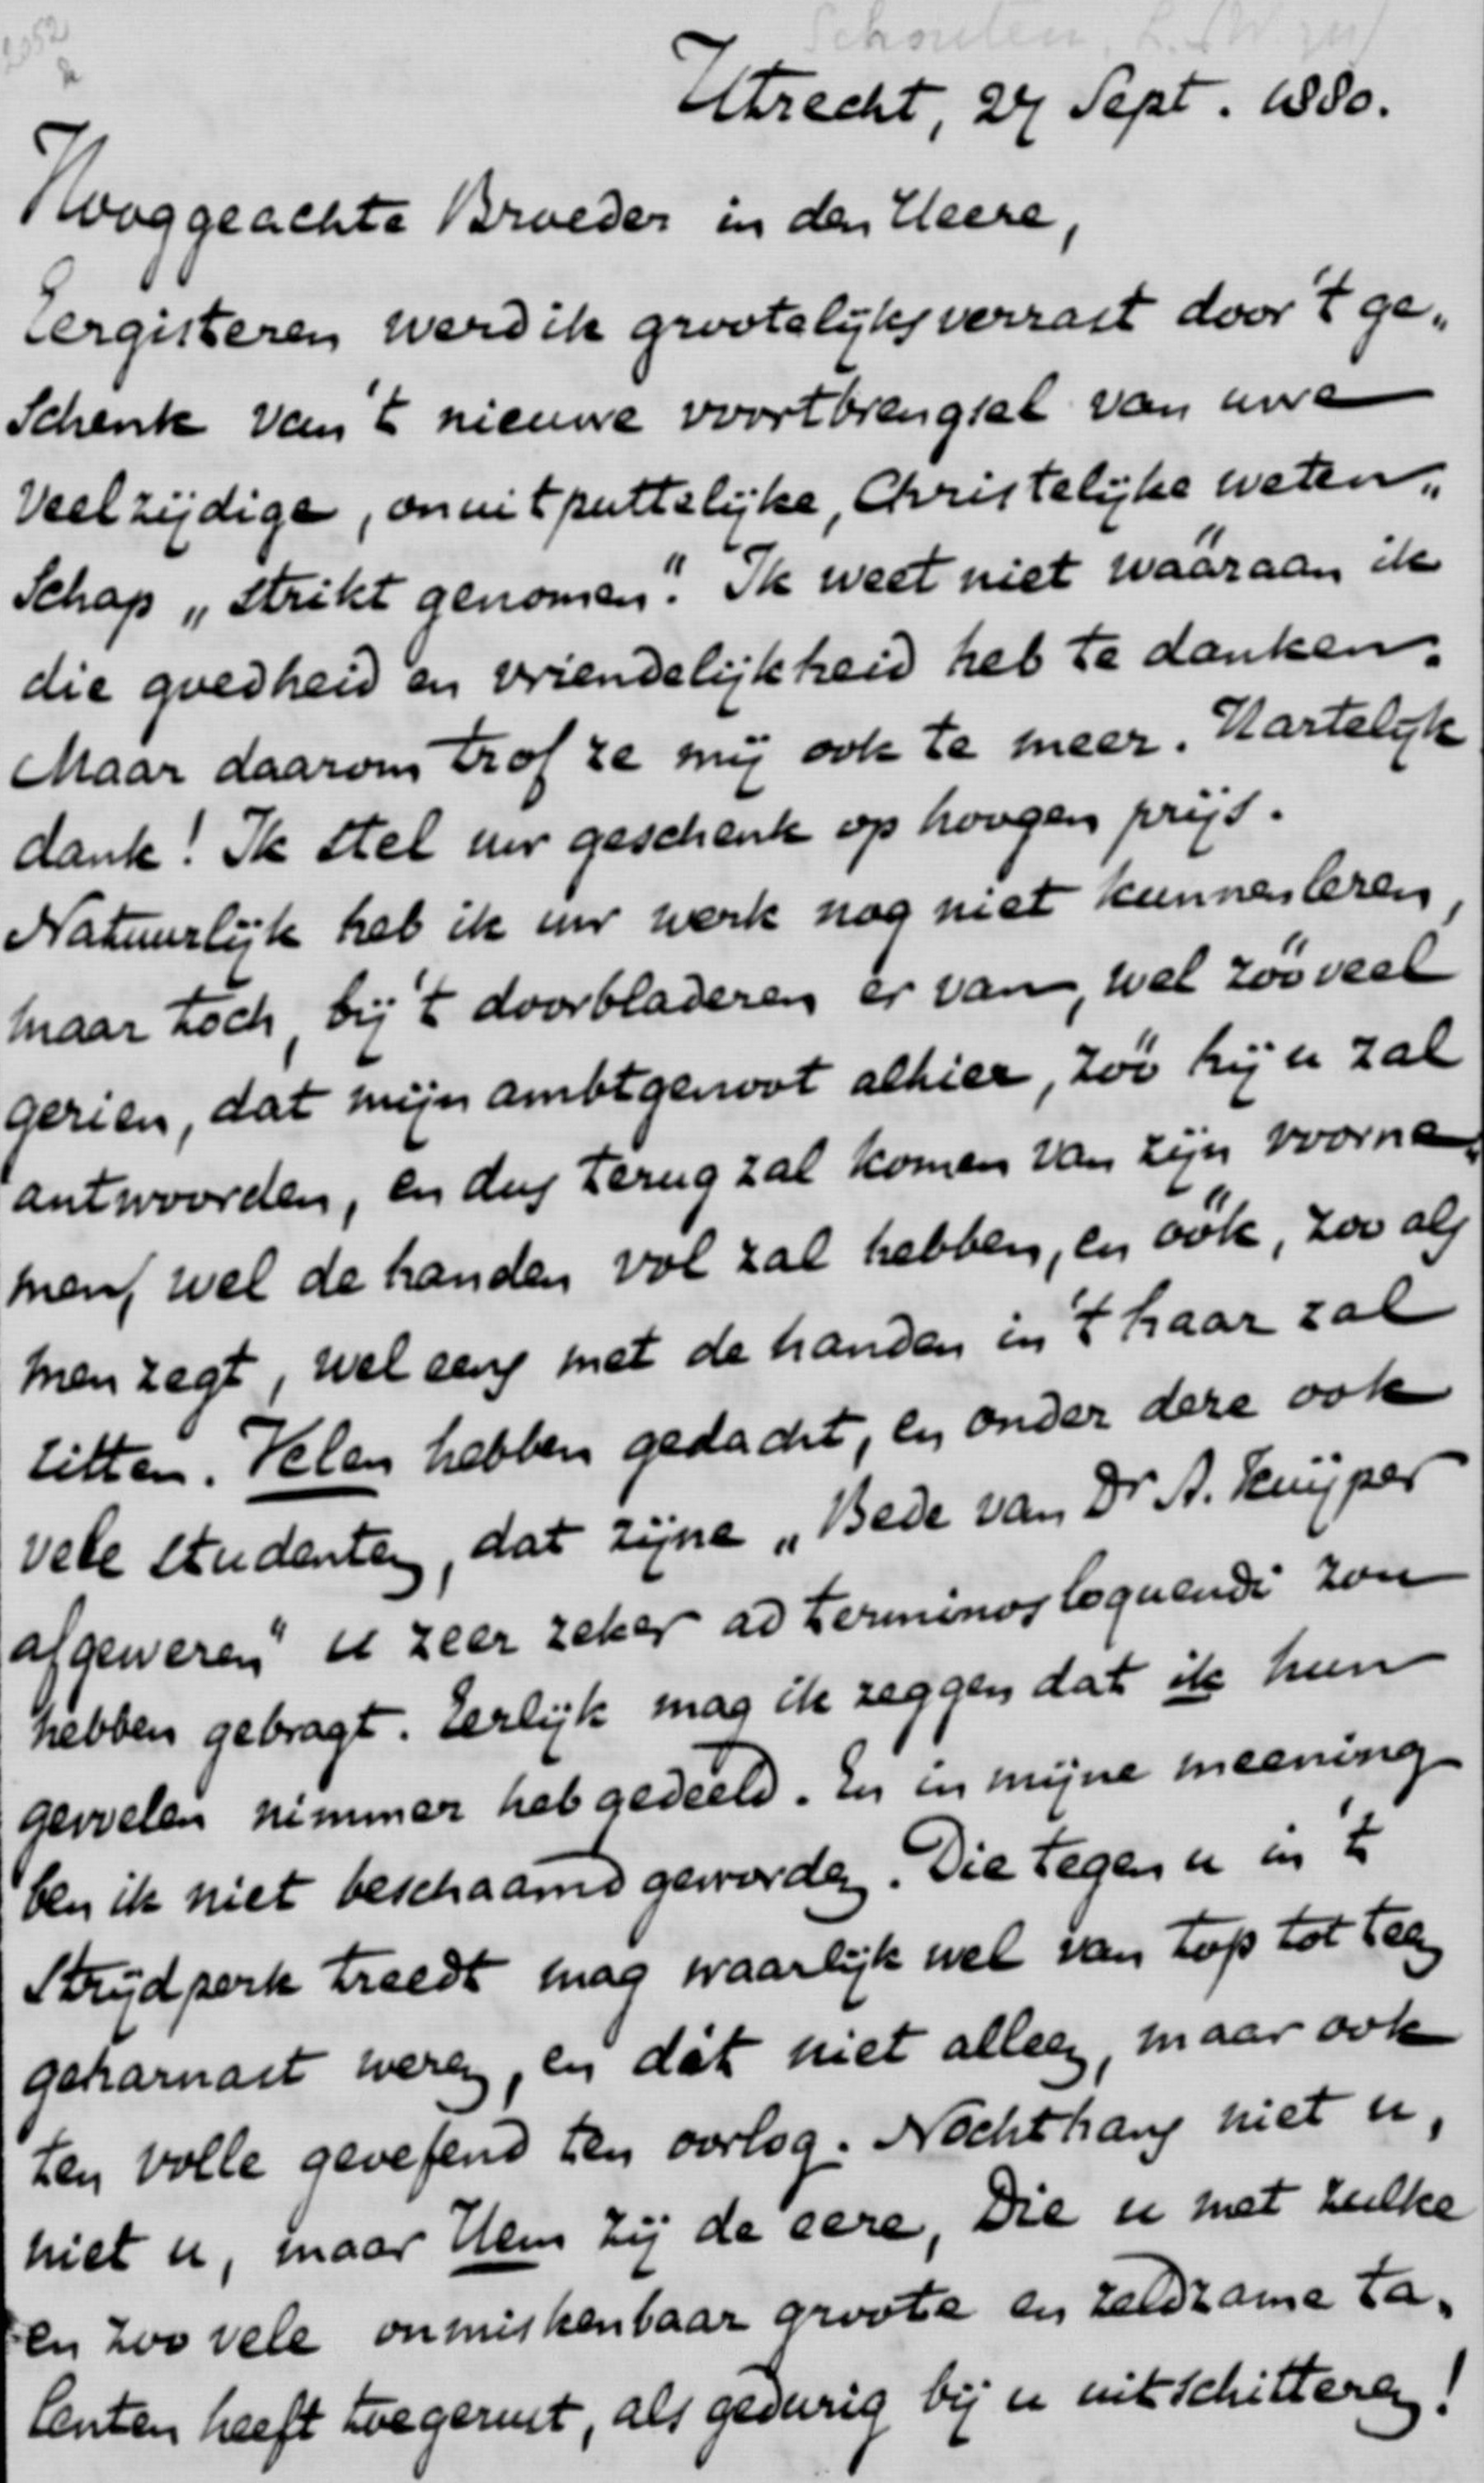 2052
Schouten, L. (W. zn)
Utrecht, 27 Sept. 1880.
Hooggeachte Broeder in den Heere,
Eergisteren werd ik grootelijks verrast door 't ge„
schenk van 't nieuwe voortbrengsel van uwe
veelzijdige, onuitputtelijke, Christelijke weten„
schap „strikt genomen". Ik weet niet wááraan ik
die goedheid en vriendelijkheid heb te danken.
Maar daarom trof ze mij ook te meer. Hartelijk
dank! Ik stel uw geschenk op hoogen prijs.
Natuurlijk heb ik uw werk nog niet kunnen lezen,
maar toch, bij 't doorbladeren er van, wel zóóveel
gezien, dat mijn ambtgenoot alhier, zóó hij u zal
antwoorden, en dus terug zal komen van zijn voorne„
men, wel de handen vol zal hebben, en óók, zoo als
men zegt, wel eens met de handen in 't haar zal
zitten. Velen hebben gedacht, en onder deze ook
vele studenten, dat zijne „Bede van Dr A. Kuijper
afgewezen" u zeer zeker ad terminos loquendi zou
hebben gebragt. Eerlijk mag ik zeggen dat ik hun
gevoelen nimmer heb gedeeld. En in mijne meening
ben ik niet beschaamd geworden. Die tegen u in 't
strijdperk treedt mag waarlijk wel van top tot teen
geharnast wezen, en dát niet alleen, maar ook
ten volle geoefend ten oorlog. Nochthans niet u,
niet u, maar Hem zij de eere, Die u met zulke
en zoo vele onmiskenbaar groote en zeldzame ta„
lenten heeft toegerust, als gedurig bij u uitschitteren!